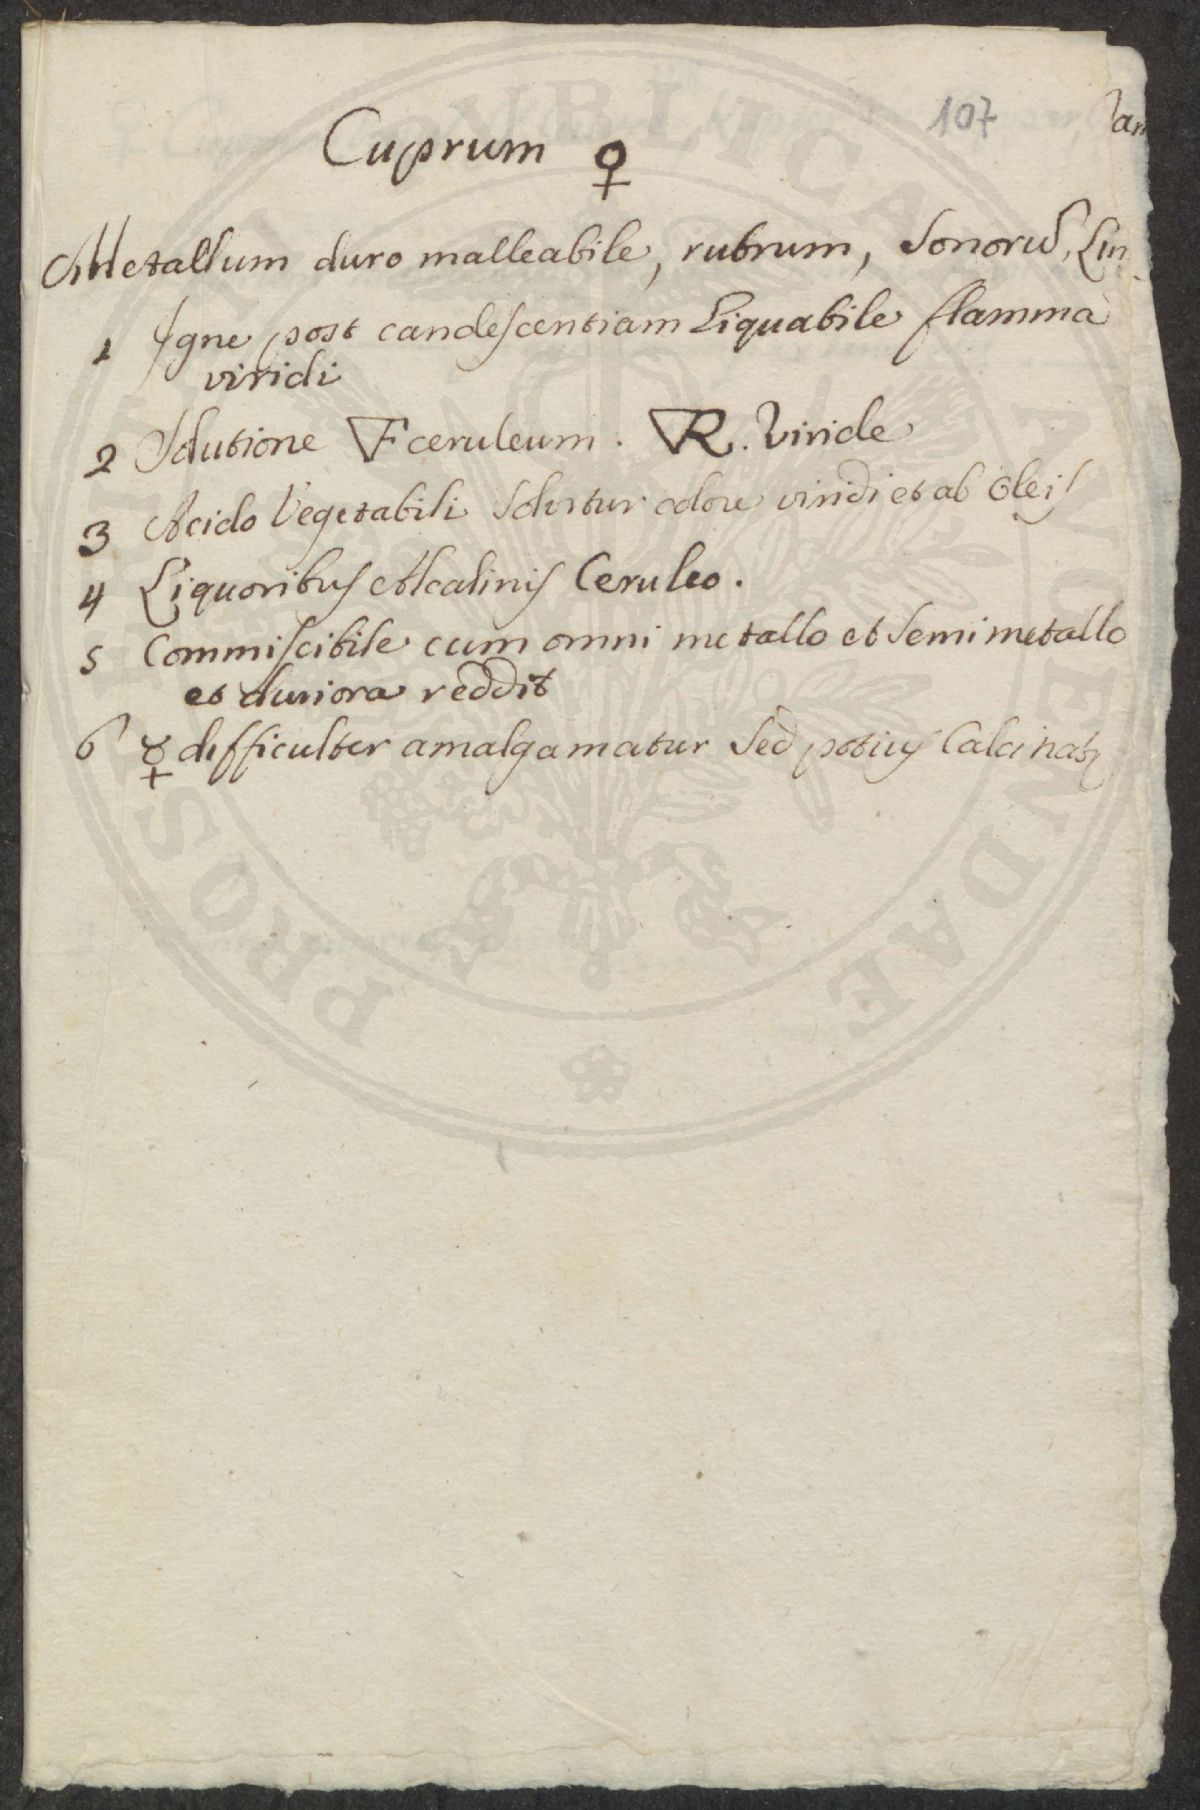 107
Cuprum ♀
Metallum duro malleabile, rubrum, Sonorū,
1 Igne post candeſcentiam Liquabile flamma
viridi
2 Solutione 🜄F ceruleum. 🜄R. viride
3 Acido Vegetabili Solvitur colore viridi et ab oleiſ
4 Liquoribuſ Alcaliniſ Ceruleo.
5 Commiſcibile cum omni metallo et Semimetallo
et duriora reddit
6 ☿ difficulter amalgamatur Sed potiuſ Calcinatꝛ
PUBLICA
PROSPERITATI
AUGENDAE